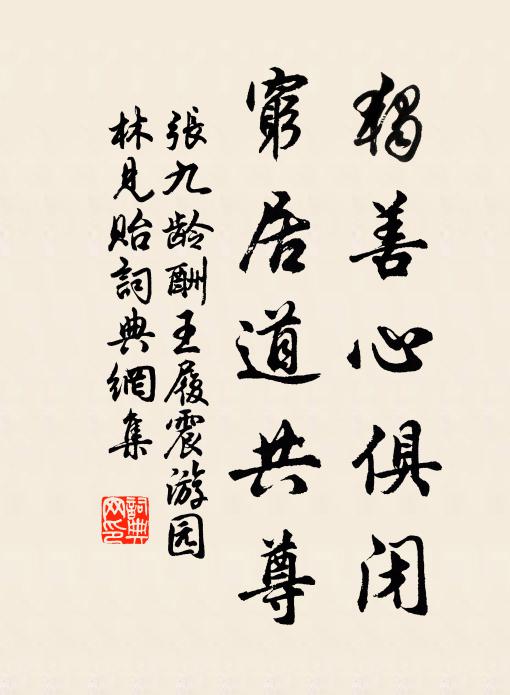 獨善心俱闭
窮居道共尊
張九龄酬王履震游园
林見贻詞典網集
詞典网印